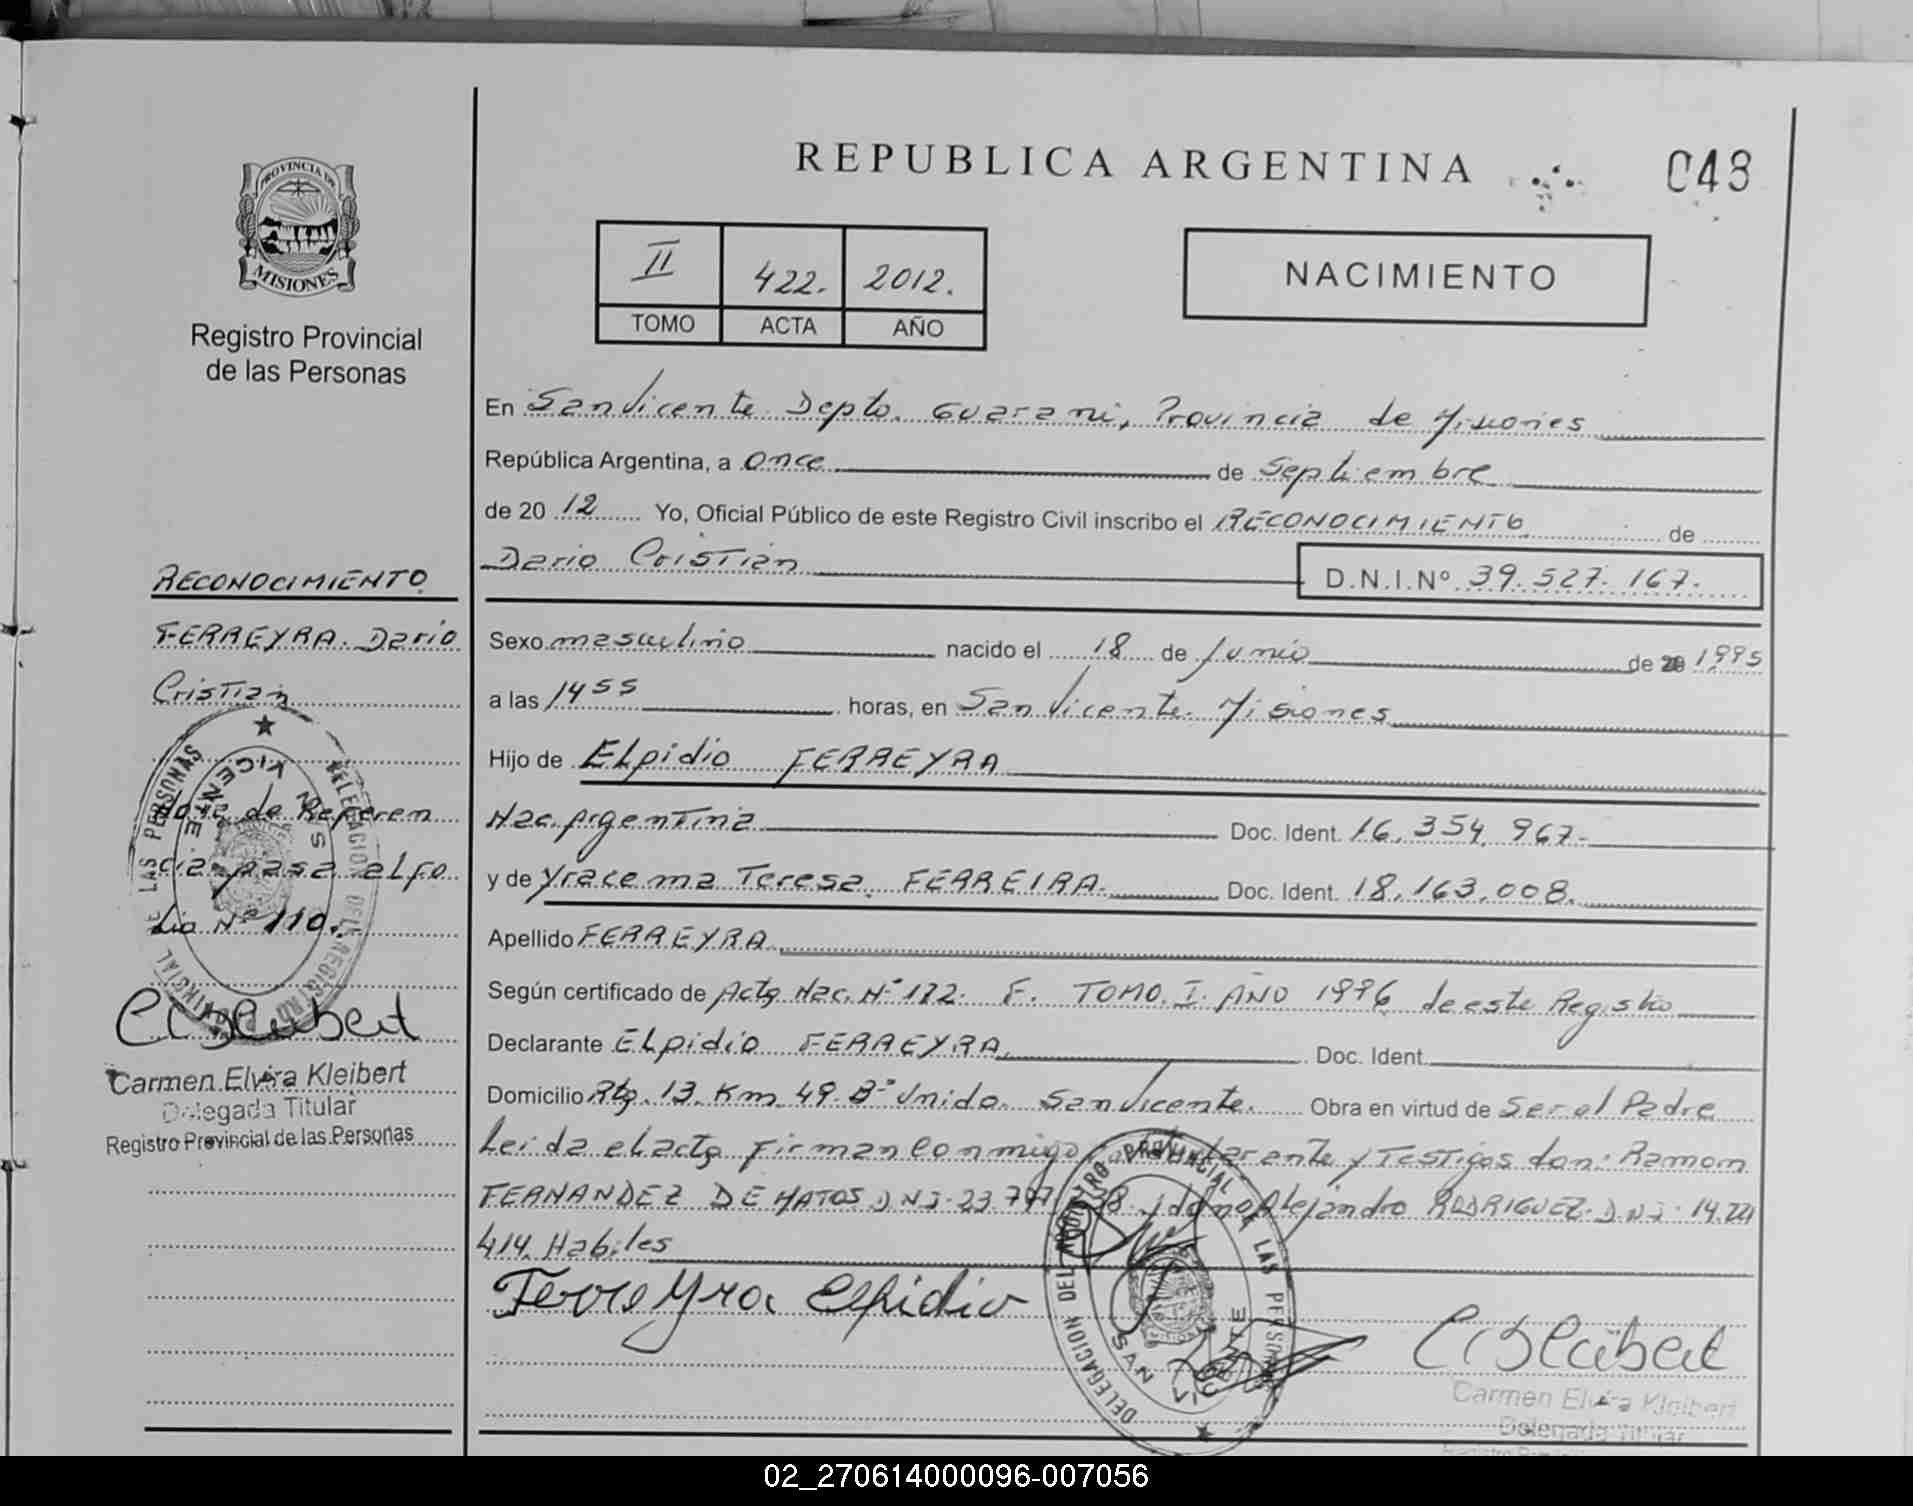 REPUBLICA ARGENTINA
043
PROVINCIA DE
MISIONES
Registro Provincial
de las Personas
II 422. 2012.
TOMO ACTA AÑO
NACIMIENTO
En San Vicente Depto. Guarani, Provincia de Misiones
República Argentina, a once de Septiembre
de 20 12 Yo, Oficial Público de este Registro Civil inscribo el RECONOCIMIENTO de
Dario Cristian D.N.I.Nº 39.527.167.
Sexo masculino nacido el 18 de Junio de 1995
a las 1455 horas, en San Vicente Misiones
Hijo de Elpidio FERREYRA
Nac. Argentina Doc. Ident. 16.354.967.
y de Yracema Teresa FERREIRA. Doc. Ident. 18.163.008.
Apellido FERREYRA
Según certificado de Acta Nac. Nº 122. F. TOMO. I. AÑO 1996 de este Registro
Declarante Elpidio FERREYRA Doc. Ident.
Domicilio Rta. 13. Km 49. Bº Unido. San Vicente. Obra en virtud de Ser el Padre
Leida el acta Firman conmigo declarante y Testigos don: Ramon
FERNANDEZ DE MATOS. DNI. Alejandro RODRIGUEZ. D.N.I.
414. Habiles
Ferreyra Elpidio
CEKleibert
Carmen Elvira Kleibert
Delegada Titular
RECONOCIMIENTO
FERREYRA. Dario
Cristian
Nota de Referen
cia pasa al Fo
lio Nº 110.
CEKleibert
Carmen Elvira Kleibert
Delegada Titular
Registro Provincial de las Personas
DELEGACION DEL REGISTRO PROVINCIAL DE LAS PERSONAS
SAN VICENTE
02_270614000096-007056